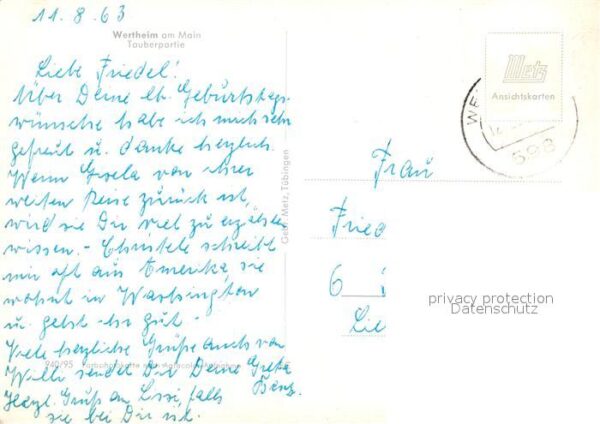 11.8.63
Wertheim am Main
Tauberpartie
Liebe Friedel!
Über Deine lb. Geburtstags-
wünsche habe ich mich sehr
gefreut u. danke herzlich.
Wenn Gisela von ihrer
weiten Reise zurück ist,
wird sie Dir viel zu erzählen
wissen. - Christele schreibt
mir oft aus Amerika, sie
wohnt in Washington
u. geht ihr gut -
Viele herzliche Grüße auch von
Willi sendet Dir Deine Greta
Herzl. Gruß an Lissi, falls
sie bei Dir ist.
940/95
Gebr. Metz, Tübingen
Metz
Ansichtskarten
598
Frau
Fried
6
Lie
privacy protection
Datenschutz